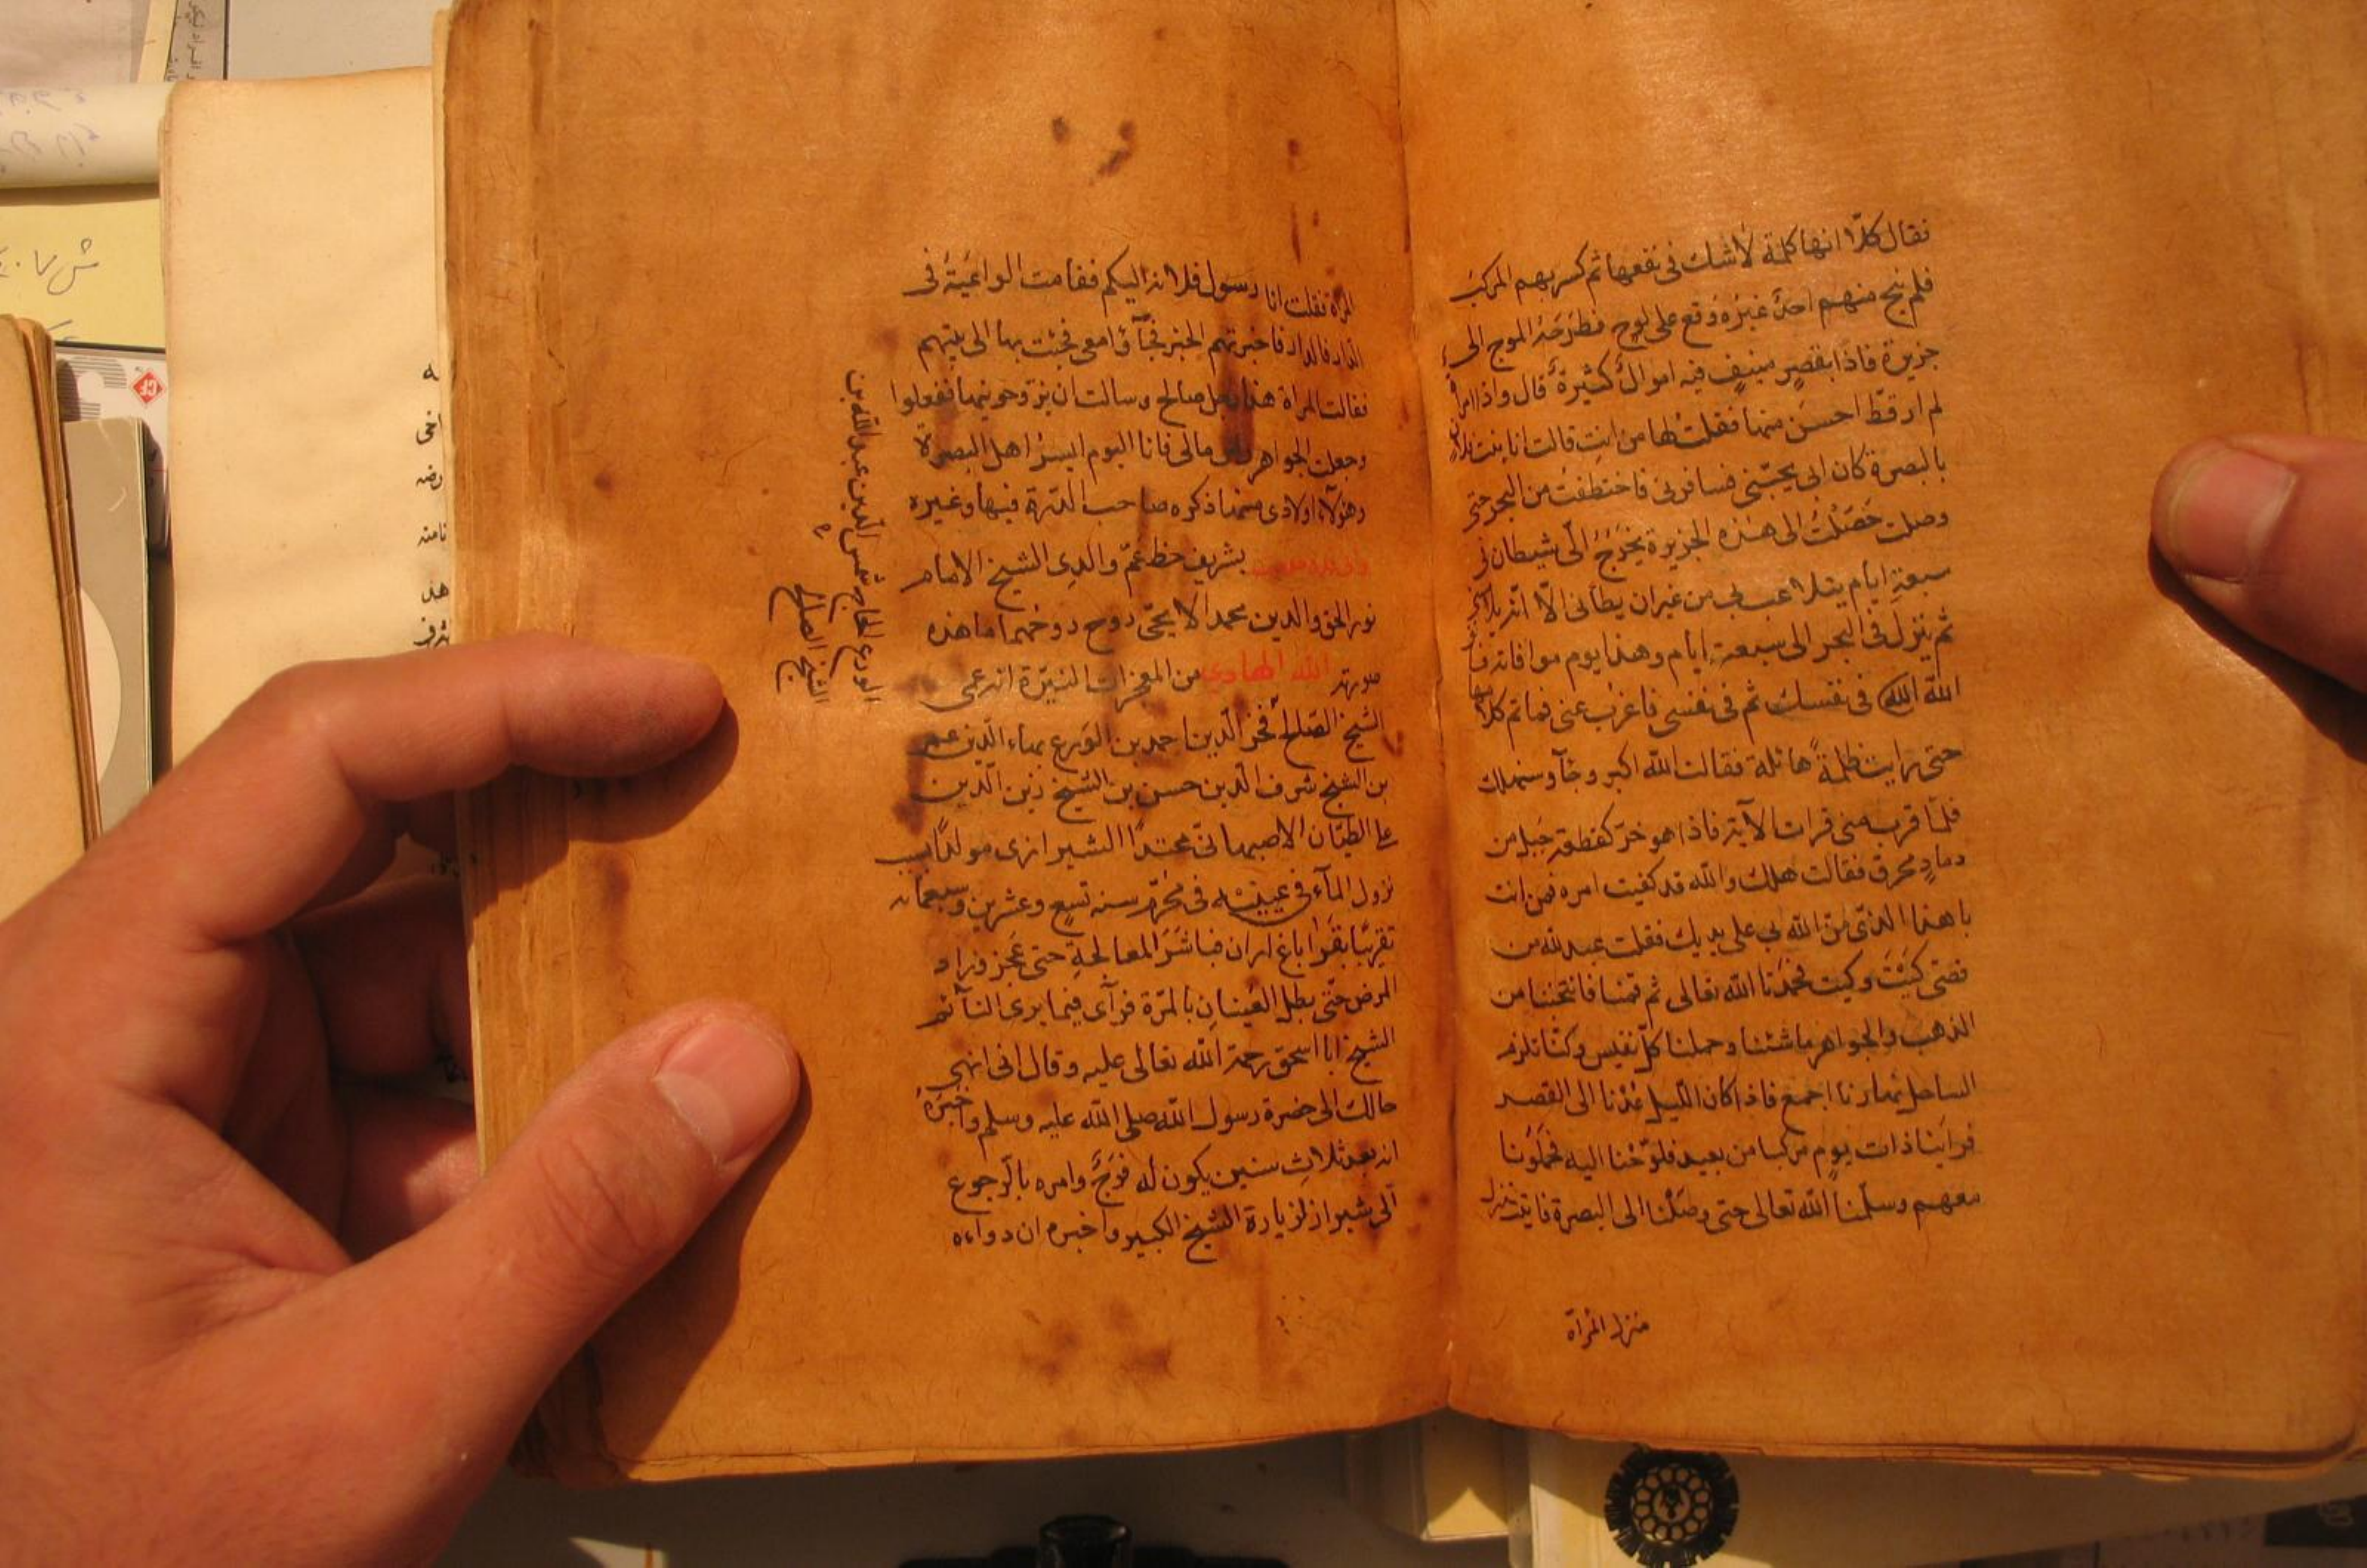 فقال كلّا انها كلمة لاشك فى نفعها ثم كسر بهم المركب
فلم ينج منهم احدٌ غيره وقع على لوح فطرحه الموج الى
جزيرة فاذا بقصر منيف فيه اموالٌ كثيرة قال واذا امراة
لم ار قطّ احسن منها فقلت لها من انت قالت انا بنت
بالبصرة كان ابى يحبّنى فسافر بى فاختطفت من البحر حتى
وصلت حصلت الى هذه الجزيرة يخرج الىّ شيطان فى
سبعة ايام يتلاعب بى من غير ان يطأنى الا انه
ثم ينزل فى البحر الى سبعة ايام وهذا يوم موافاته
الله الله فى نفسك ثم فى نفسى فاغرب عنى فما تم كلامها
حتى رايت ظلمةً هائلة فقالت الله اكبر وجآء وسيهلك
فلما قرب منى قرات الآية فاذا هو خرّ كقطعة جبل من
رمادٍ محرق فقالت هلك والله قد كفيت امره فمن انت
يا هذا الذى منّ الله بى على يديك فقلت عبد لله من
قصتى كيت وكيت فحمدنا الله تعالى ثم قمنا فانتخبنا من
الذهب والجواهر ما شئنا وحملنا كلّ نفيس وكنّا نلزم
الساحل نهارنا اجمع فاذا كان الليل عُدْنا الى القصر
فراينا ذات يوم مركبا من بعيد فلوّحنا اليه فحملونا
معهم وسلّمنا الله تعالى حتى وصلنا الى البصرة فاتيت منزل
منزل المرأة
المرأة فقلت انا رسول فلانة اليكم فقامت الواعية فى
الدار فاخبرتهم الخبر فجآؤا معى فجئت بها الى بيتهم
فقالت المراة هذا رجل صالح وسالت ان يزوجونيها ففعلوا
وجعلت الجواهر مالى فانا اليوم ايسر اهل البصرة
وهؤلاء اولادى منها ذكره صاحب وغيره
بشريف خط عمّ والدى الشيخ الامام
نور الحق والدين محمد الايجى روح روحهما ما هذه
صورته الله الهادى من المعجزات النيّرة انه عمى
الشيخ الصالح فخر الدين احمد بن الورع بهاء الدين عمر
بن الشيخ شرف الدين حسن بن الشيخ زين الدين
على الطيّان الاصبهانى محتدًا الشيرازى مولدًا بسبب
نزول المآء فى عينيه فى محرم سنه تسع وعشرين وسبعمائه
تقريبًا بقراباغ اران فباشر المعالجة حتى عجز وزاد
المرض حتى بطل العينان بالمرّة فرأى فيما يرى النآئم
الشيخ ابا اسحق رحمة الله تعالى عليه وقال انى انهى
حالك الى حضرة رسول الله صلى الله عليه وسلم واخبره
انه بعد ثلاث سنين يكون له فرج وامره بالرجوع
الى شيراز لزيارة الشيخ الكبير واخبره ان دواءه
الورع الحاج شمس الدين عبد الله بن
الشيخ الصالح